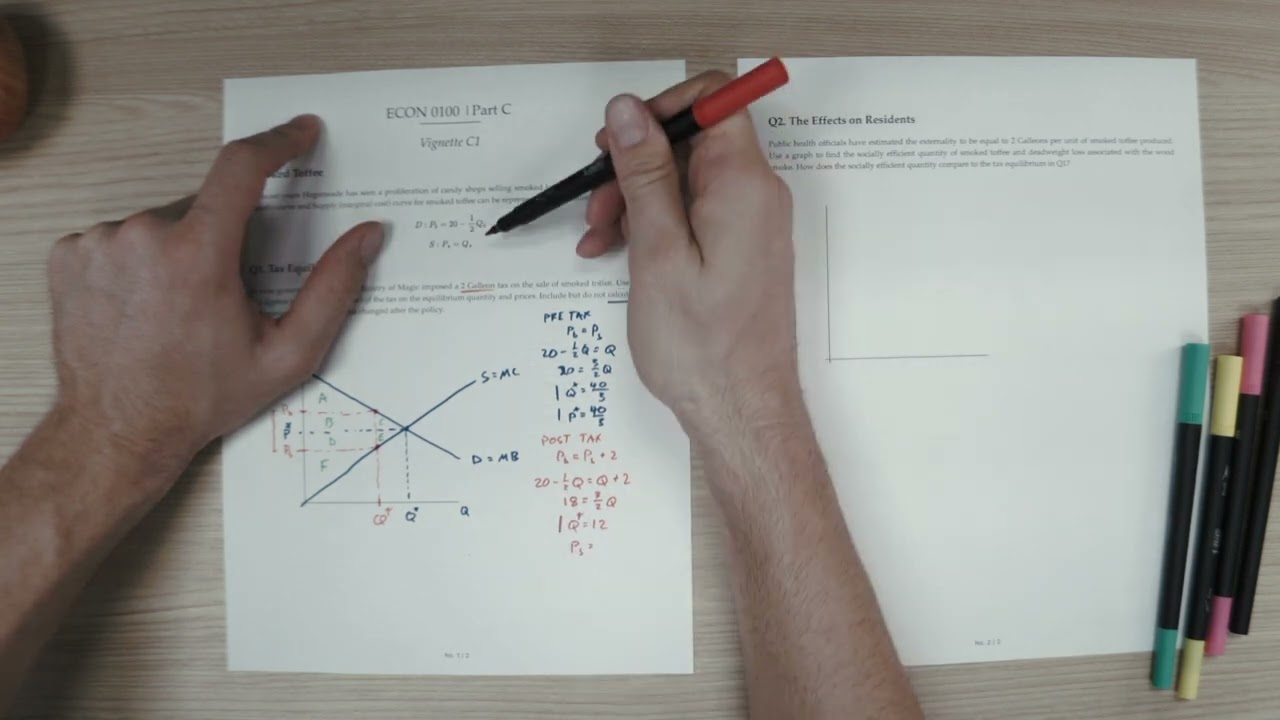 ECON 0100 | Part C
Vignette C1
Toffee
has seen a proliferation of candy shops selling smoked
curve and supply (marginal cost) curve for smoked toffee can be
D : P_b = 20 - 1/2 Q_b
S : P_s = Q_s
Q1. Tax
of Magic imposed a 2 Galleon tax on the sale of smoked toffee. Use
of the tax on the equilibrium quantity and prices. Include but do not
changed after the policy.
PRE TAX
P_b = P_s
20 - 1/2 Q = Q
20 = 3/2 Q
Q* = 40/3
P* = 40/3
POST TAX
P_b = P_s + 2
20 - 1/2 Q = Q + 2
18 = 3/2 Q
Q^T = 12
P_s =
S = MC
A
B
C
D
E
F
D = MB
Q^T
Q*
Q
No. 1 / 2
Q2. The Effects on Residents
Public health officials have estimated the externality to be equal to 2 Galleons per unit of smoked toffee produced.
Use a graph to find the socially efficient quantity of smoked toffee and deadweight loss associated with the wood
smoke. How does the socially efficient quantity compare to the tax equilibrium in Q1?
No. 2 / 2